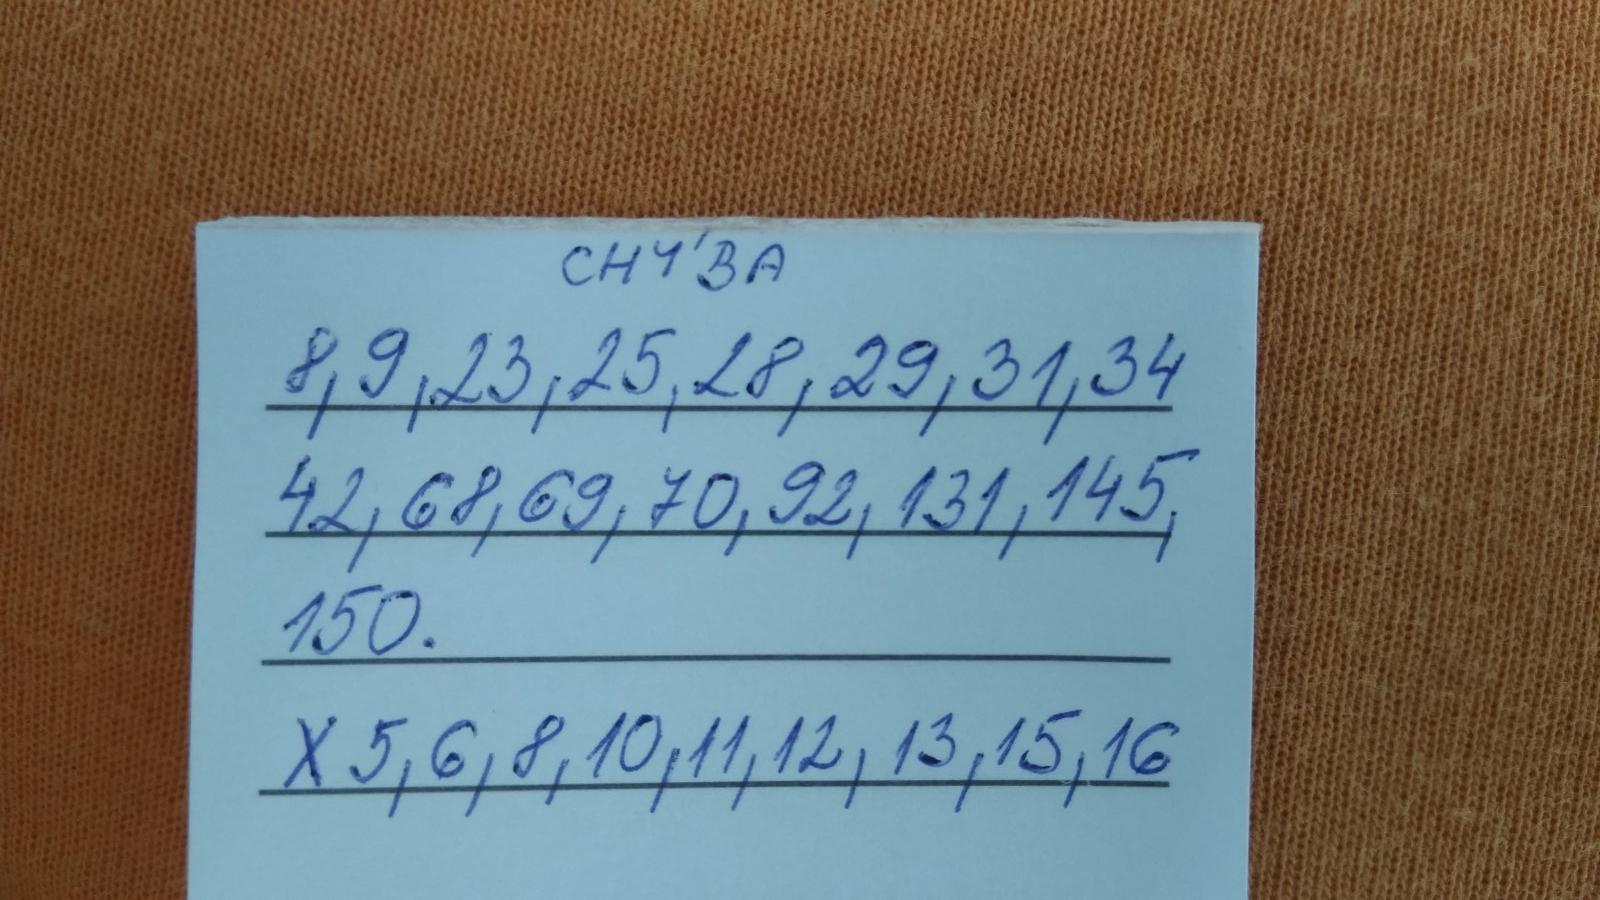 СНУ'ВА
8, 9, 23, 25, 28, 29, 31, 34
42, 68, 69, 70, 92, 131, 145,
150.
X 5, 6, 8, 10, 11, 12, 13, 15, 16